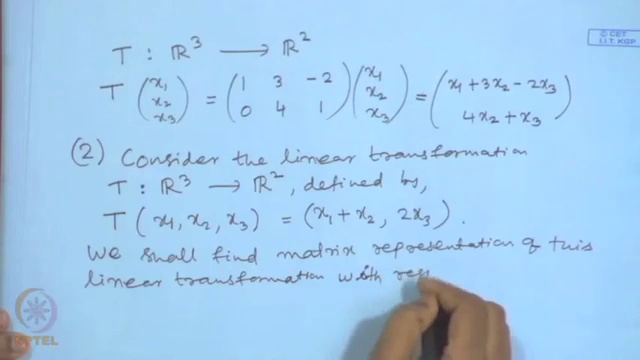 © CET
I.I.T. KGP
T : ℝ³ ⟶ ℝ²
T (x₁ x₂ x₃) = (1 3 -2 0 4 1) (x₁ x₂ x₃) = (x₁ + 3x₂ - 2x₃ 4x₂ + x₃)
(2) Consider the linear transformation
T : ℝ³ ⟶ ℝ², defined by,
T (x₁, x₂, x₃) = (x₁ + x₂, 2x₃).
We shall find matrix representation of this
linear transformation with res
NPTEL